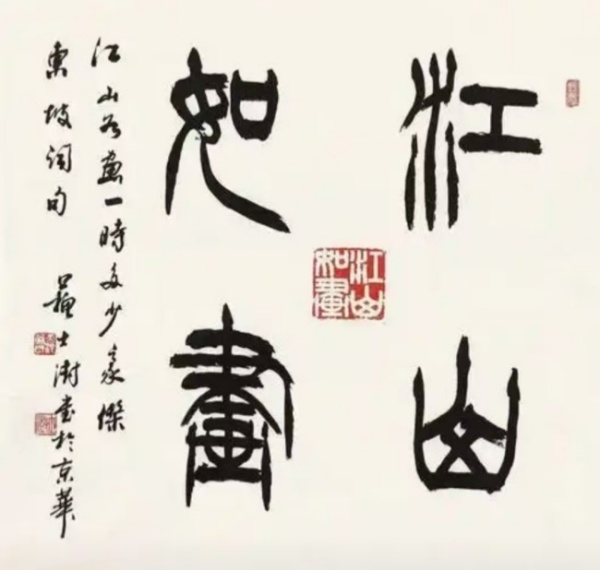 江山
如畫
江山
如畫
江山如畫一時多少豪傑
東坡詞句 蘇士澍書於京華